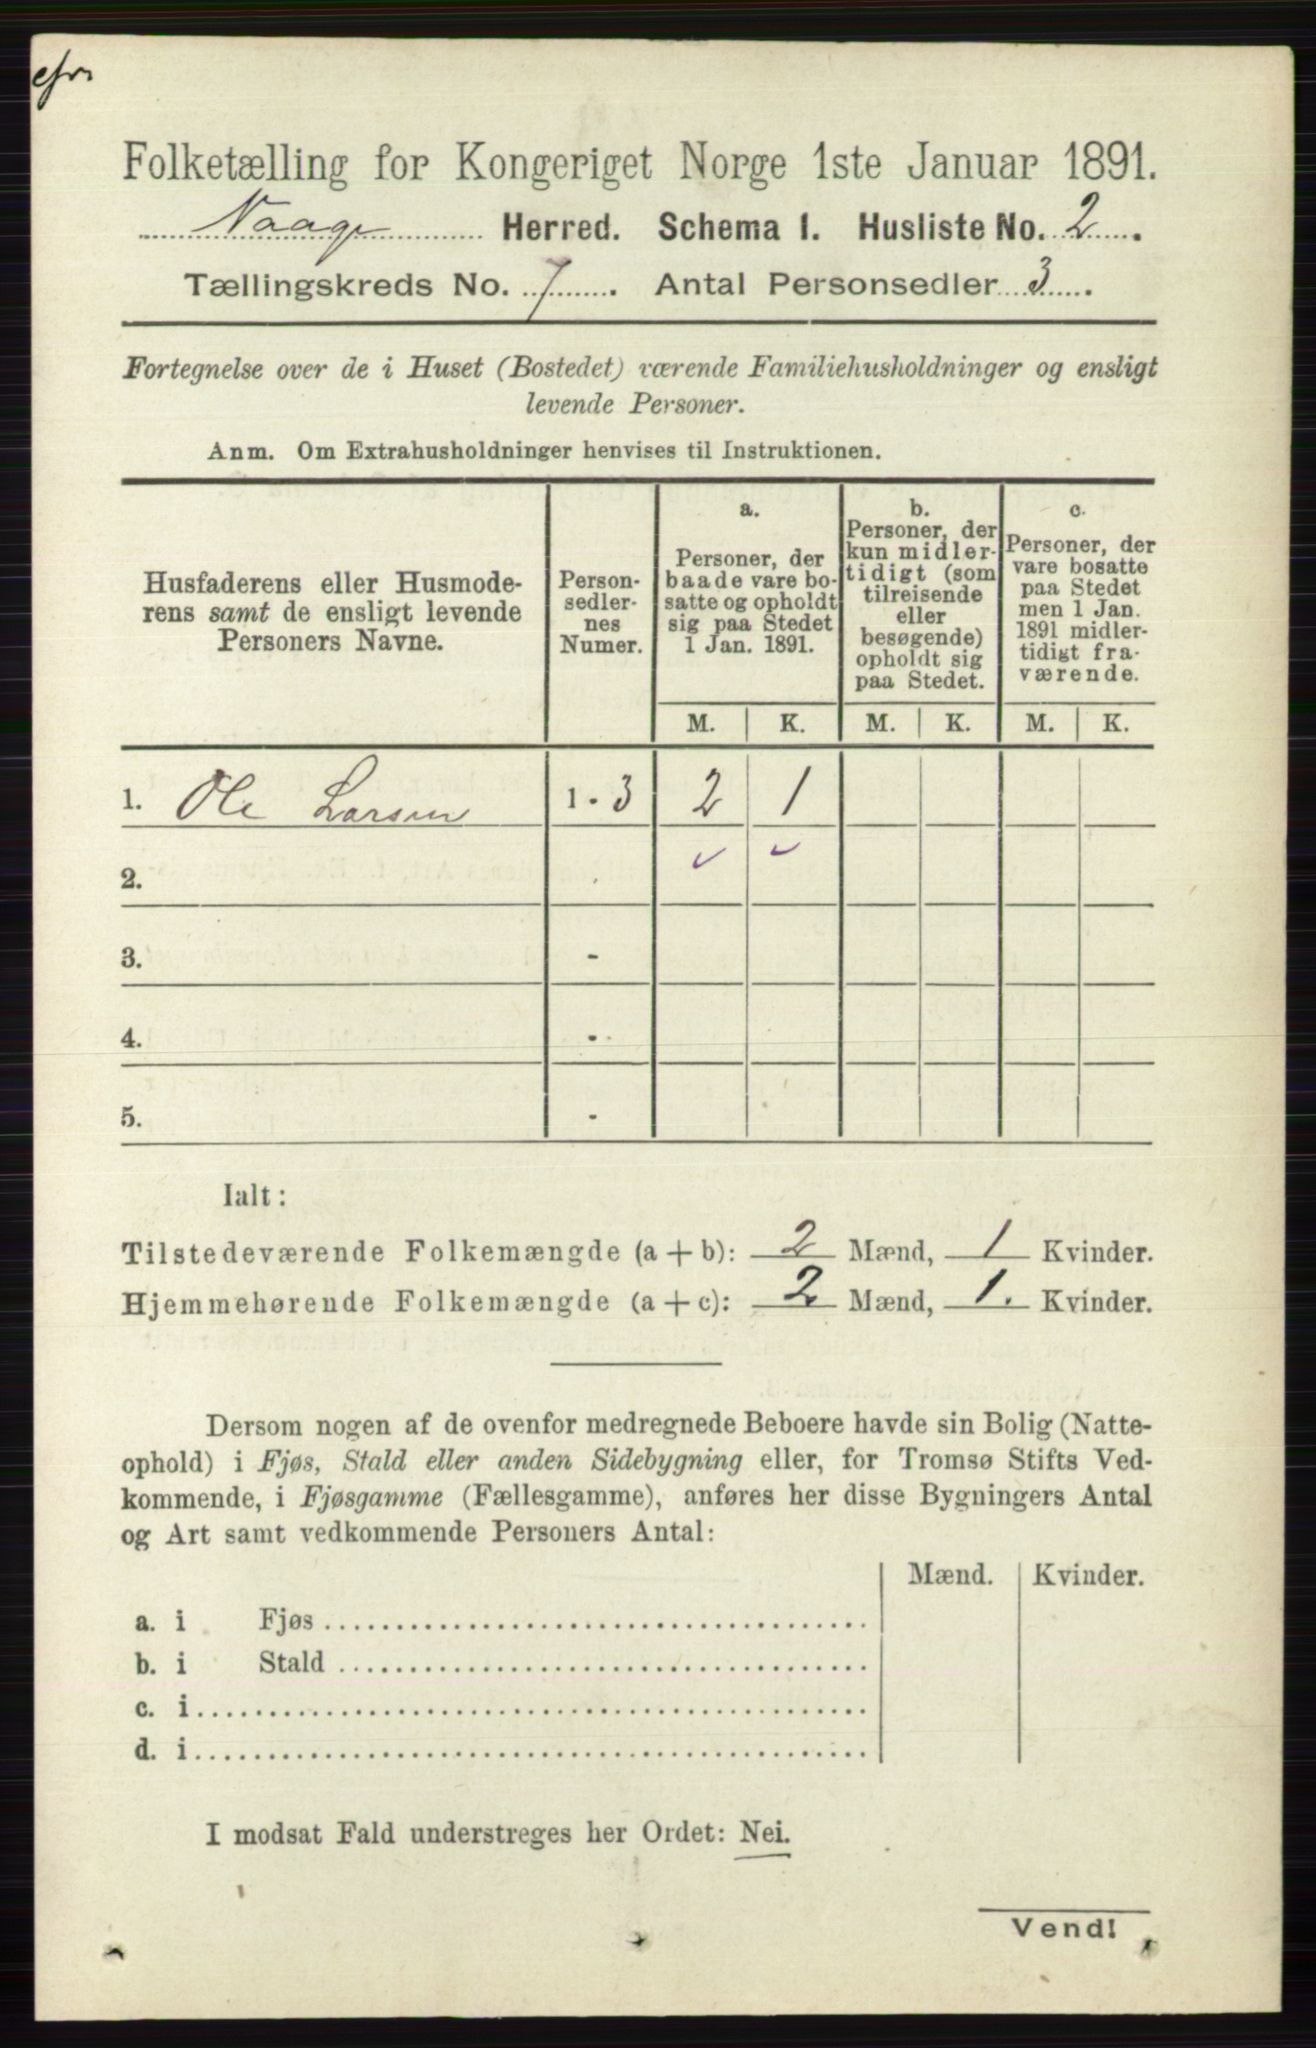 Folketælling for Kongeriget Norge 1ste Januar 1891.
Vaage Herred. Schema 1. Husliste No. 2
Tællingskreds No. 7. Antal Personsedler 3.
Fortegnelse over de i Huset (Bostedet) værende Familiehusholdninger og ensligt
levende Personer.
Anm. Om Extrahusholdninger henvises til Instruktionen.
Husfaderens eller Husmode-
rens samt de ensligt levende
Personers Navne.
Person-
sedler-
nes
Numer.
a.
Personer, der
baade vare bo-
satte og opholdt
sig paa Stedet
1 Jan. 1891.
b.
Personer, der
kun midler-
tidigt (som
tilreisende
eller
besøgende)
opholdt sig
paa Stedet.
c.
Personer, der
vare bosatte
paa Stedet
men 1 Jan.
1891 midler-
tidigt fra-
værende.
M. K. M. K. M. K.
1. Ole Larsen 1-3 2 1
2.
3. -
4. -
5. -
Ialt:
Tilstedeværende Folkemængde (a + b): 2 Mænd, 1 Kvinder.
Hjemmehørende Folkemængde (a + c): 2 Mænd, 1. Kvinder.
Dersom nogen af de ovenfor medregnede Beboere havde sin Bolig (Natte-
ophold) i Fjøs, Stald eller anden Sidebygning eller, for Tromsø Stifts Ved-
kommende, i Fjøsgamme (Fællesgamme), anføres her disse Bygningers Antal
og Art samt vedkommende Personers Antal:
Mænd. Kvinder.
a. i Fjøs
b. i Stald
c. i
d. i
I modsat Fald understreges her Ordet: Nei.
Vend!